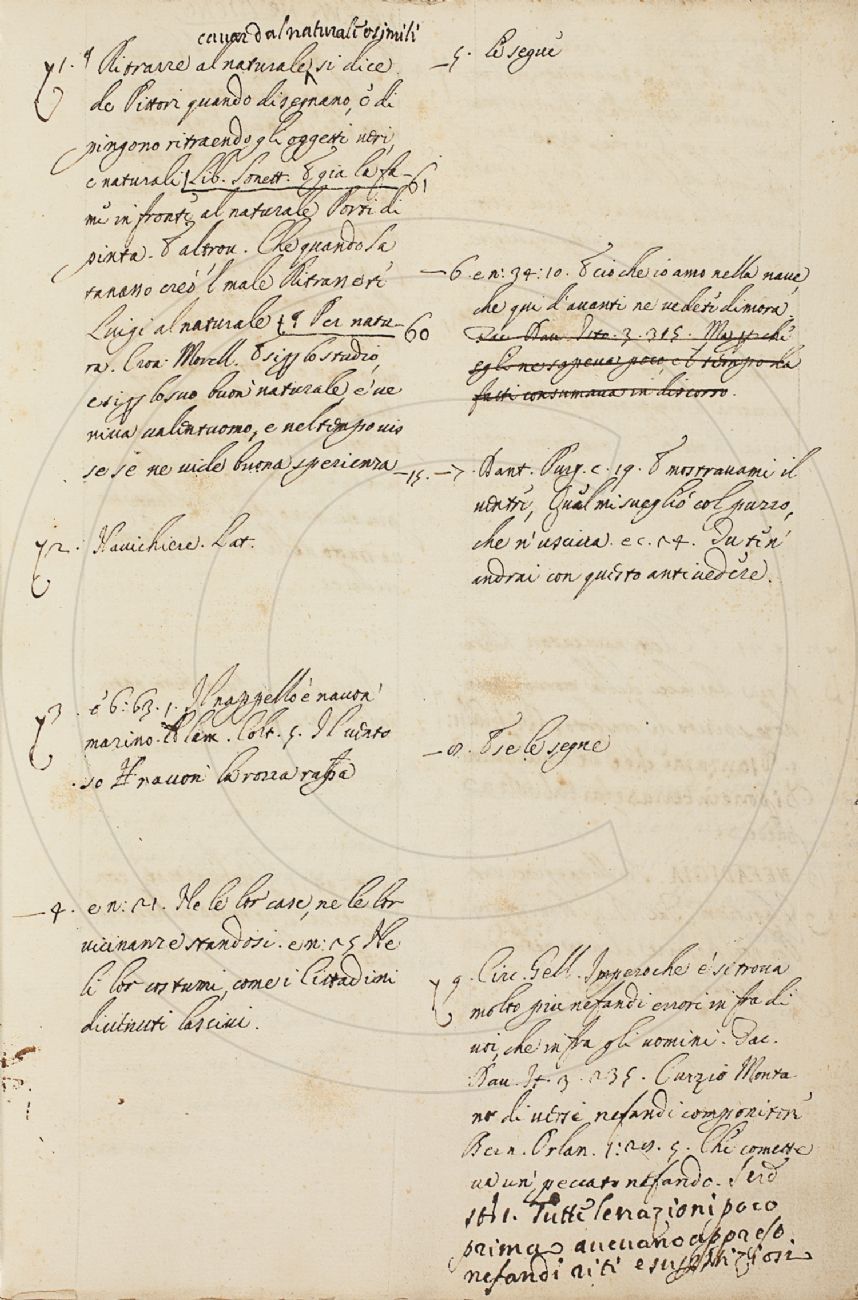 cavar dal naturale o simili
1. ¶ Ritrarre al naturale, si dice
de Pittori quando disegnano, ò di
pingono ritraendo gli oggetti veri,
e naturali Lib. Sonett. E gia la fa- 61
me in fronte al naturale Porti di
pinta. E altrov. Che quando Sa
tanasso creò 'l male Ritrasse ti
Luigi al naturale ¶ Per natu- 60
ra. Cron. Morell. E si per lo studio,
e si per lo suo buon naturale, e' ve
niva valentuomo, e nel tempo vis
se se ne vide buona sperienza
2. Navichiere. Lat.
3. è 6: 63. 1. Il nappello è navon'
marino. Alam. Colt. 5. Il vento
so navon' la rozza rapa
4. e n: 21. Ne le lor case, ne le lor
vicinanze standosi. e n: 25 Ne
li lor costumi, come i Cittadini
divenuti lascivi.
5. Le segue
6. e n: 34: 10. E cio che io amo nella nave
che qui d'avanti ne vedete dimora
Tac. Dav. Sto. 3. 315. Ma perchè
egli ne sapeva poco, e 'l tempo da
fatti consumava in discorso.
15. 7. Dant. Purg. c. 19. E mostravami il
ventre, Quel mi svegliò col puzzo,
che n' usciva. e c. 24. Tu te n'
andrai con questo antivedere.
8. E se le segne
9. Circ. Gell. Imperoche e' si trova
molto piu nefandi errori infra di
voi, che infra gli uomini. Tac.
Dav. St. 3. 235. Curzio Monta
no di versi nefandi componitore
Bern. Orlan. 1: 29. 5. Che comette
va un' peccato nefando. Serd
st. 1. Tutte le nazioni poco
prima avevano appreso
nefandi riti e superstiziosi